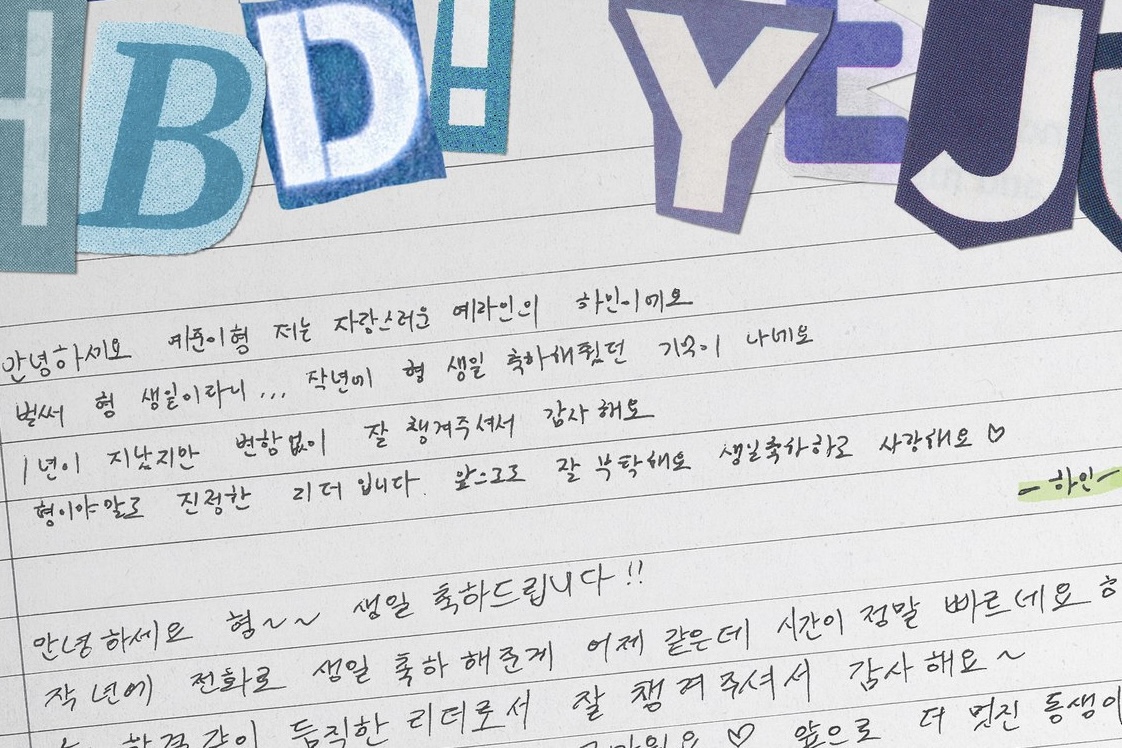 HBDH YEJU
안녕하세요 예준이형 저는 자랑스러운 예라인의 하인이에요
벌써 형 생일이라니... 작년에 형 생일 축하해줬던 기억이 나네요
1년이 지났지만 변함없이 잘 챙겨주셔서 감사해요
형이야말로 진정한 리더입니다. 앞으로도 잘 부탁해요 생일축하하고 사랑해요 ♡
- 하인 -
안녕하세요 형~~ 생일 축하드립니다!!
작년에 전화로 생일 축하해준게 어제 같은데 시간이 정말 빠르네요
듬직한 리더로서 잘 챙겨주셔서 감사해요~
♡ 앞으로 더 멋진 동생이